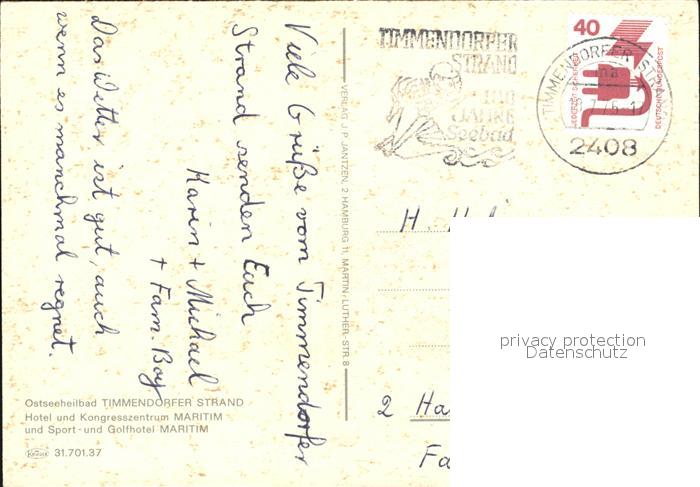 Viele Grüße vom Timmendorfer
Strand senden Euch
Karin + Michael
+ Fam. Boy
Das Wetter ist gut, auch
wenn es manchmal regnet.
VERLAG J. P. JANTZEN, 2 HAMBURG 11, MARTIN-LUTHER-STR. 8
TIMMENDORFER
STRAND
JAHRE
Seebad
40
DEUTSCHE BUNDESPOST
TIMMENDORFER STR
2408
H.
2 Ha
Fa
privacy protection
Datenschutz
Ostseeheilbad TIMMENDORFER STRAND
Hotel und Kongresszentrum MARITIM
und Sport- und Golfhotel MARITIM
Krüger 31.701.37